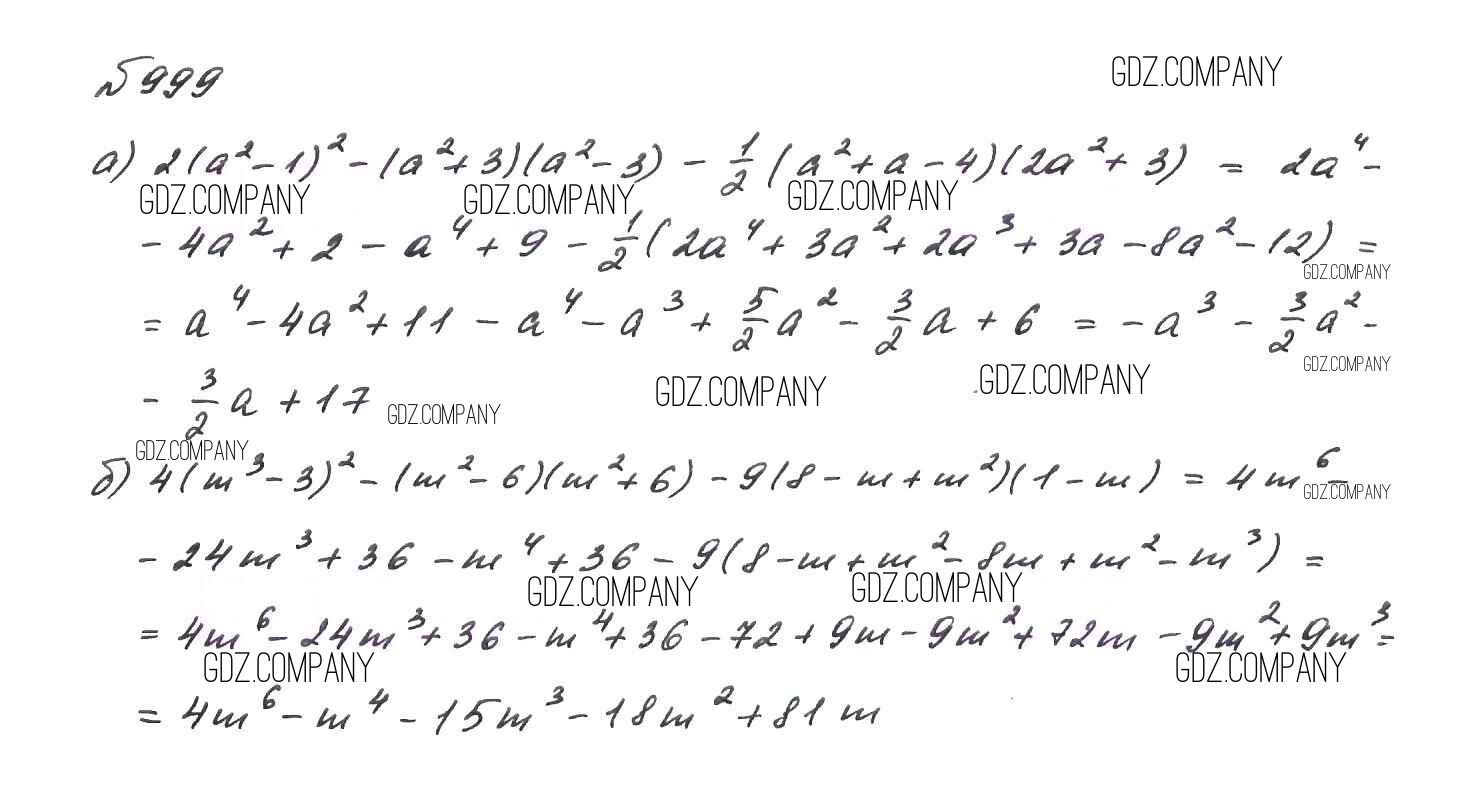 №999
GDZ.COMPANY
а) 2(a²-1)² - (a²+3)(a²-3) - 1/2 (a²+a-4)(2a²+3) = 2a⁴ -
GDZ.COMPANY GDZ.COMPANY GDZ.COMPANY
- 4a² + 2 - a⁴ + 9 - 1/2 (2a⁴ + 3a² + 2a³ + 3a - 8a² - 12) =
GDZ.COMPANY
= a⁴ - 4a² + 11 - a⁴ - a³ + 5/2 a² - 3/2 a + 6 = -a³ - 3/2 a² -
GDZ.COMPANY
- 3/2 a + 17
GDZ.COMPANY GDZ.COMPANY GDZ.COMPANY
GDZ.COMPANY
б) 4(m³-3)² - (m²-6)(m²+6) - 9(8-m+m²)(1-m) = 4m⁶ -
GDZ.COMPANY
- 24m³ + 36 - m⁴ + 36 - 9(8-m+m²-8m+m²-m³) =
GDZ.COMPANY GDZ.COMPANY
= 4m⁶ - 24m³ + 36 - m⁴ + 36 - 72 + 9m - 9m² + 72m - 9m² + 9m³ =
GDZ.COMPANY GDZ.COMPANY
= 4m⁶ - m⁴ - 15m³ - 18m² + 81m